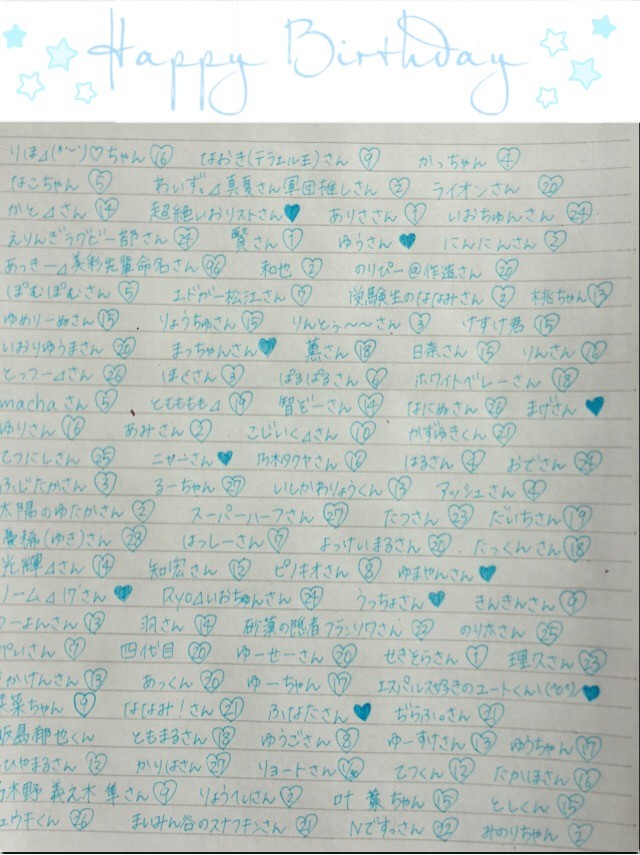 Happy Birthday
りほ⊿(*'~')♡ちゃん 16 なおき(テラエル王)さん 9 かっちゃん 4
なこちゃん 5 あいず。⊿真夏さん軍団推しさん 2 ライオンさん 20
かと⊿さん 14 超絶いおりストさん♥ ありささん 1 いおちゅんさん 24
えりんぎラグビー部さん 24 賢さん 1 ゆうさん♥ にんにんさん 2
あっきー⊿美彩先輩命名さん 96 和也 2 のりぴー@作造さん 20
ぽむぽむさん 5 エドガー松江さん 7 受験生のななみさん 2 桃ちゃん 13
ゆめりーぬさん 15 りょうちゅさん 15 りんとぅ〜〜さん 3 けすけ君 15
いおりゆうまさん 20 まっちゃんさん♥ 薫さん 18 日奈さん 15 りんさん 16
とっつー⊿さん 26 ほぐさん 3 ぱるぱるさん 6 ホワイトベレーさん 18
machaさん 5 とももも⊿ 19 智ぞーさん 14 なにぬさん 20 まげさん♥
ゆりさん 16 あみさん 2 こじいく⊿さん 10 かずゆきくん 21
てつにしさん 25 ニャーさん♥ 乃木タクヤさん 16 はるさん 4 おでさん 24
ふじたかさん 3 るーちゃん 27 いしかわりょうくん 13 アッシュさん 4
太陽のゆたかさん 2 スーパーハーフさん 27 たつさん 23 だいちさん 19
(ゆき)さん 23 はっしーさん 7 よっけいまるさん 20 たっくんさん 18
光輝⊿さん 14 知宏さん 12 ピノキオさん 8 ゆまやんさん♥
ノーム⊿17さん♥ Ryo⊿いおちゅんさん 24 うっちょさん♥ きんきんさん 9
ーよんさん 13 羽さん 14 砂漠の隠者フランソワさん 22 のり太さん 25
ぺいさん 7 四代目 20 ゆーせーさん 20 せきそらさん 1 理久さん 23
かけんさん 13 あっくん 20 ゆーちゃん 17 エスパルス好きのユートくん\(^o^)/♥
菜ちゃん 9 ななみ!さん 21 ふなたさん♥ ぢらふ。さん 21
飯島郁也くん ともまるさん 18 ゆうごさん 8 ゆーすけさん 13 ゆうちゃん 17
ひやまるさん 12 かりぱさん 27 リョートさん てつくん 12 たかほさん 16
木野 義之木 隼さん 9 りょうへいさん 2 叶 葉ちゃん 15 としくん 15
ュウキくん 26 まいみん谷のスナフキンさん 21 Nですっさん 22 みのりちゃん 2